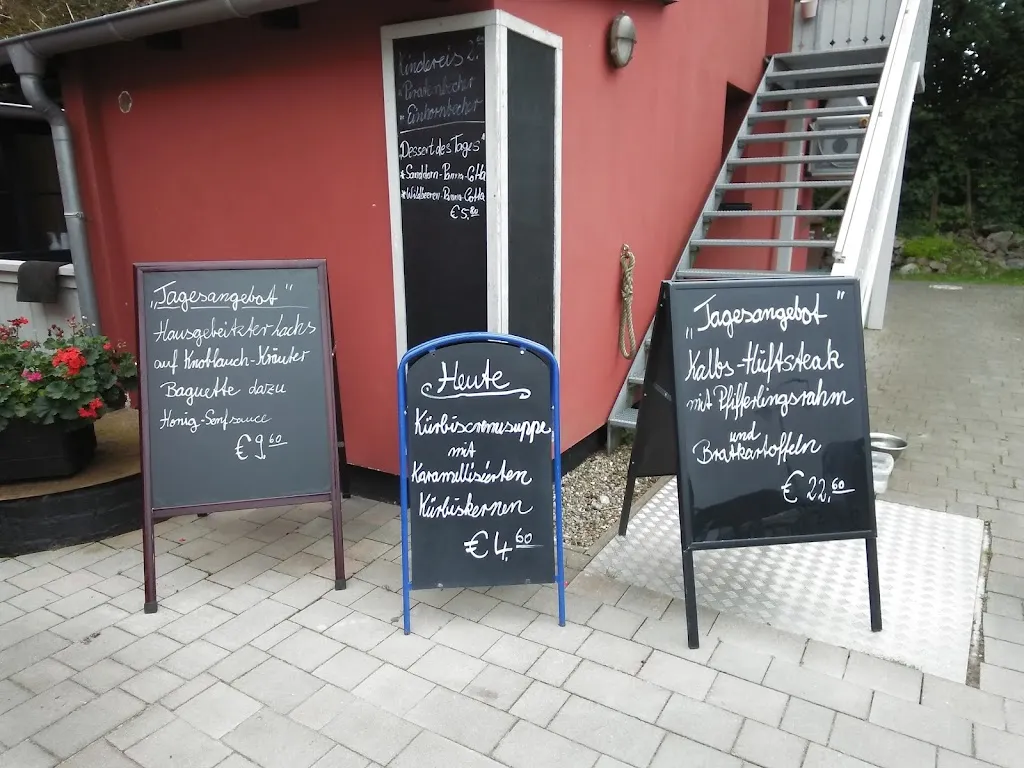 Kindereis 2,
"Piratenbecher
"Einhornbecher
„Dessert des Tages"
*Sanddorn-Panna-Cotta
*Wildbeeren-Panna-Cotta
€ 5,80
„Tagesangebot"
Hausgebeitzter Lachs
auf Knoblauch-Kräuter
Baguette dazu
Honig-Senfsauce
€ 9,60
Heute
Kürbiscremesuppe
mit
Karamellisierten
Kürbiskernen
€ 4,60
„Tagesangebot"
Kalbs-Hüftsteak
mit Pfifferlingsrahm
und
Bratkartoffeln
€ 22,60